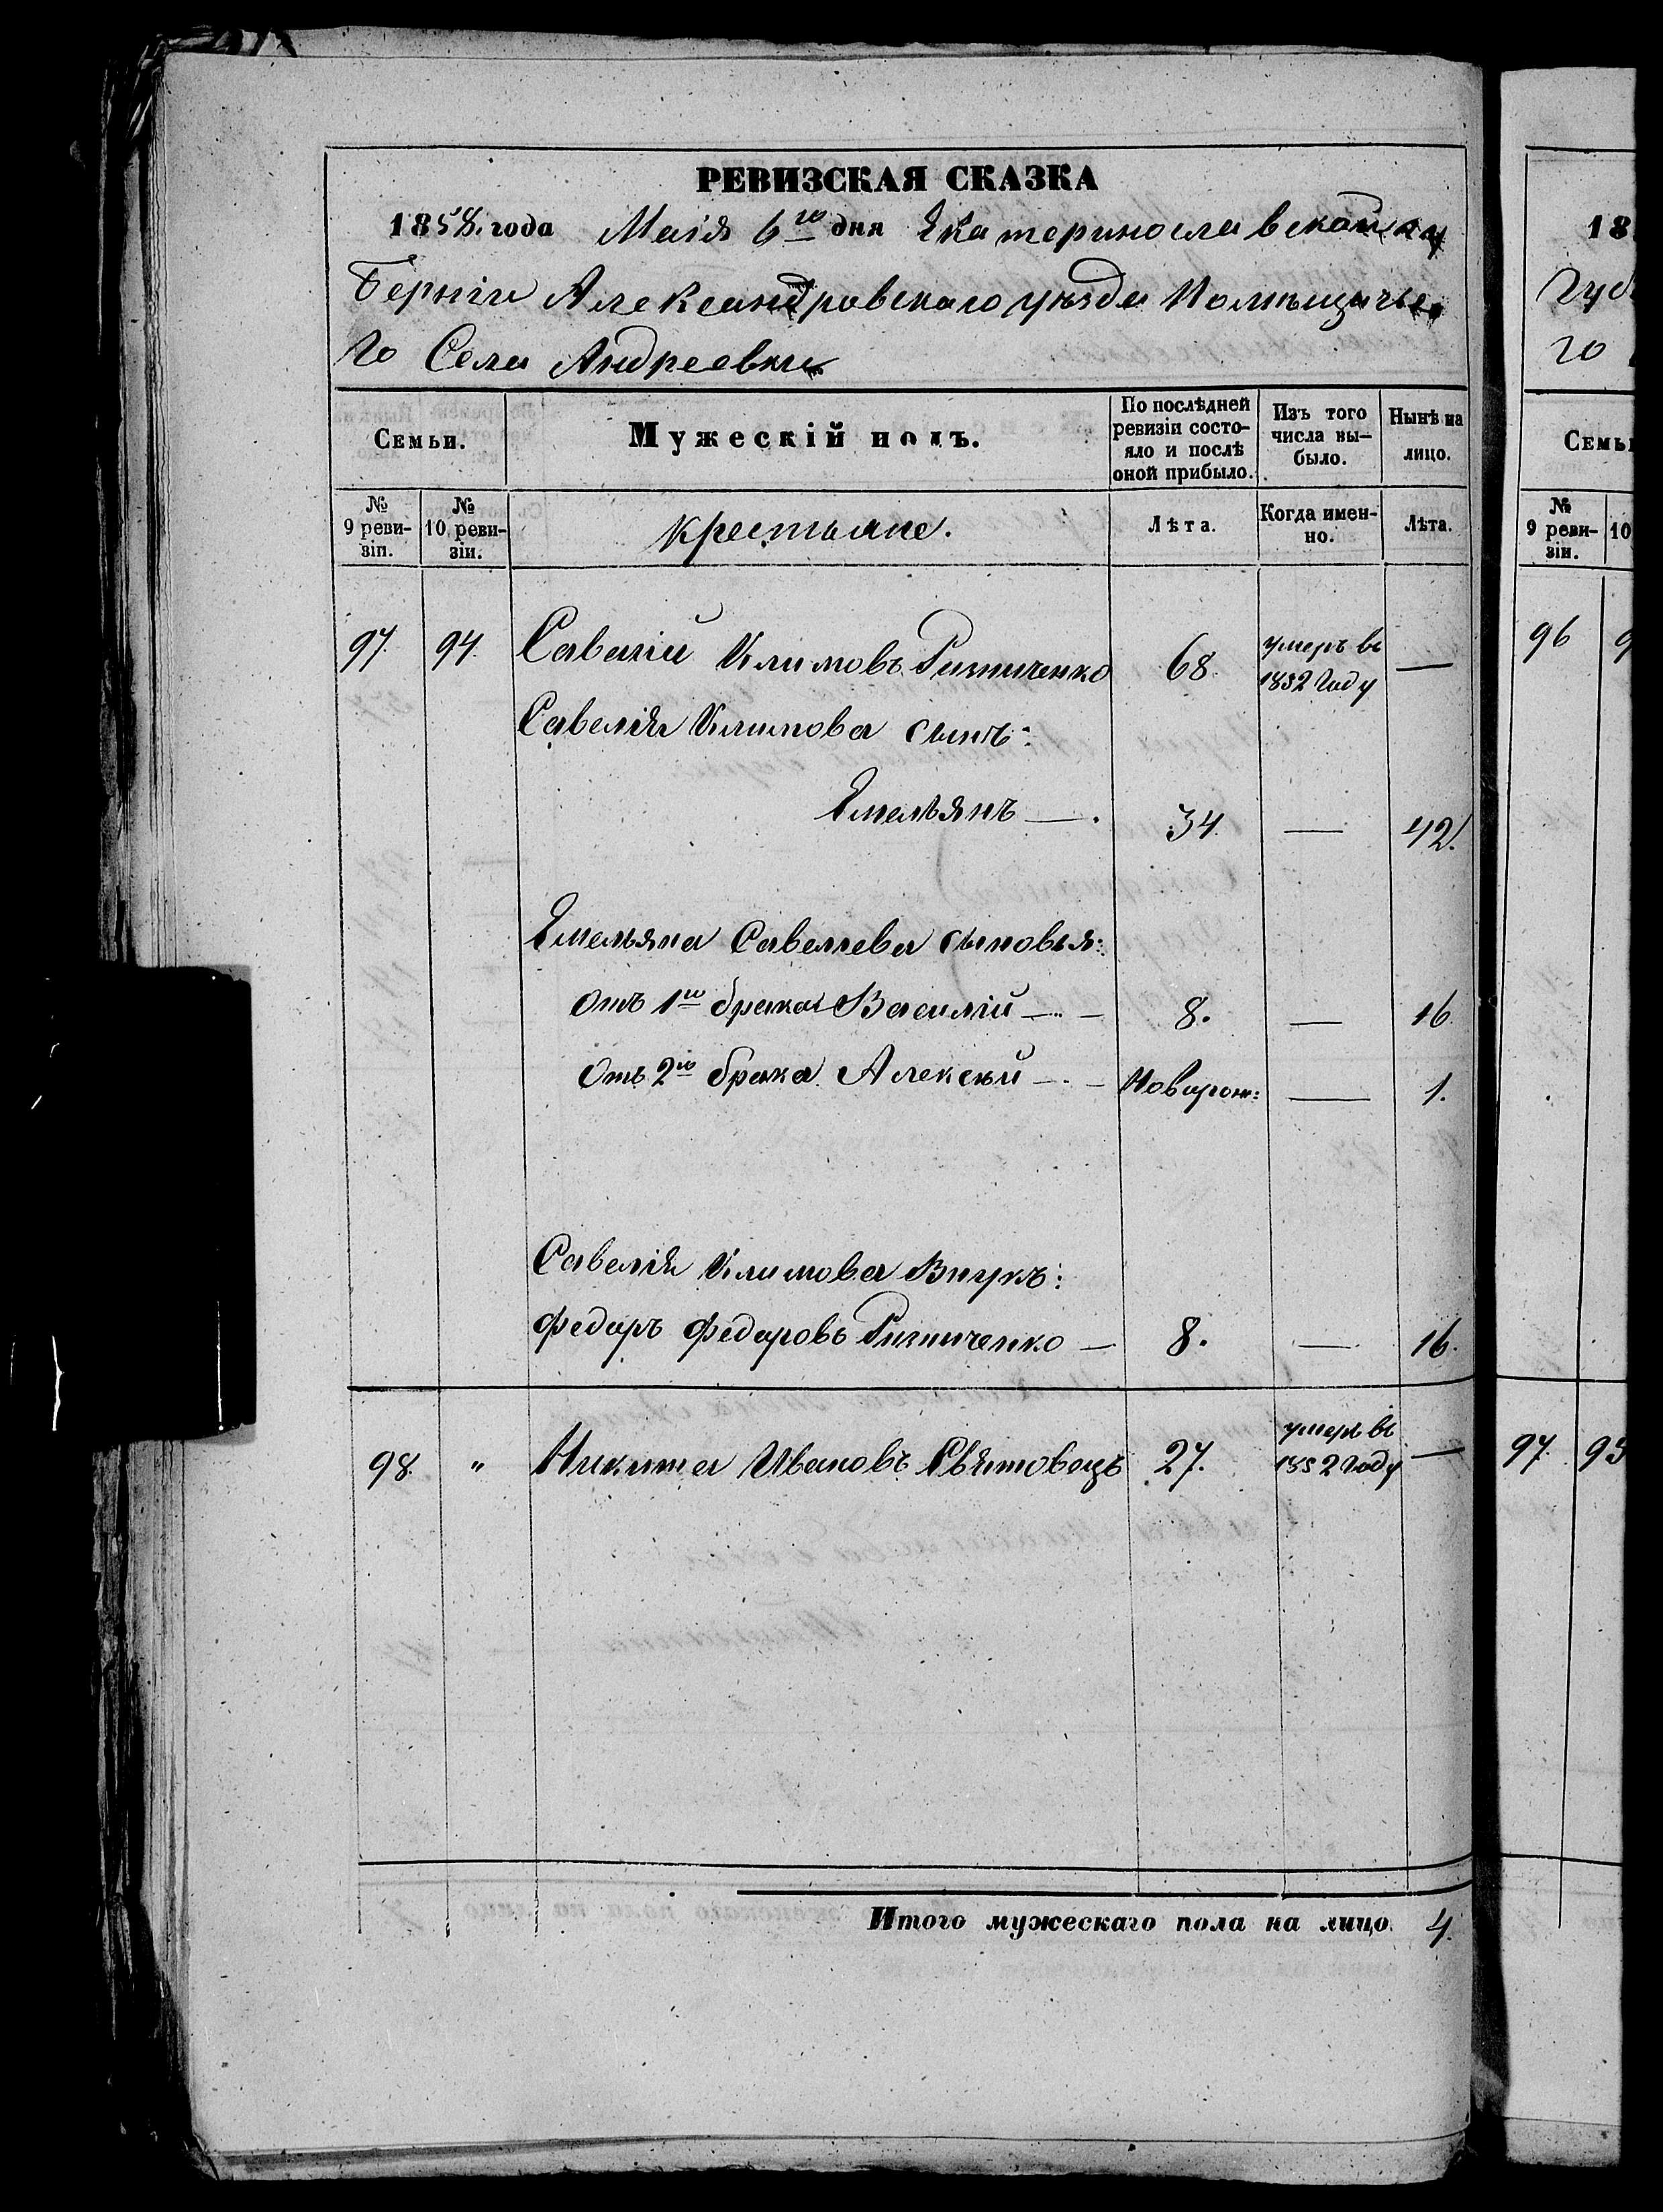 РЕВИЗСКАЯ СКАЗКА
1858 года Маія 6го дня Екатеринославской гу
берніи Александровскаго уѣзда Помѣщичье
го Села Андреевки
Семьи. Мужескій полъ. По послѣдней ревизіи состо- яло и послѣ оной прибыло. Изъ того числа вы- было. Нынѣ на лицо.
№ 9 реви- зіи. № 10 реви- зіи. Крестьяне. Лѣта. Когда имен- но. Лѣта.
97. 94. Савелій Климовъ 68. умеръ въ 1852 году —
Савелія Климова сынъ:
Емельянъ — 34. — 42.
Емельяна Савелиева сыновья:
отъ 1го брака Василій — 8. — 16.
отъ 2го брака Алексѣй — Новорож: — 1.
Савелія Климова Внукъ:
Федоръ Федоровъ — 8. — 16.
98. " Никита Ивановъ Святовецъ 27. умеръ въ 1852 году —
Итого мужескаго пола на лицо 4.
18
Губ
го
Семьи
№ 9 реви- зіи. 10
96 9
97. 95